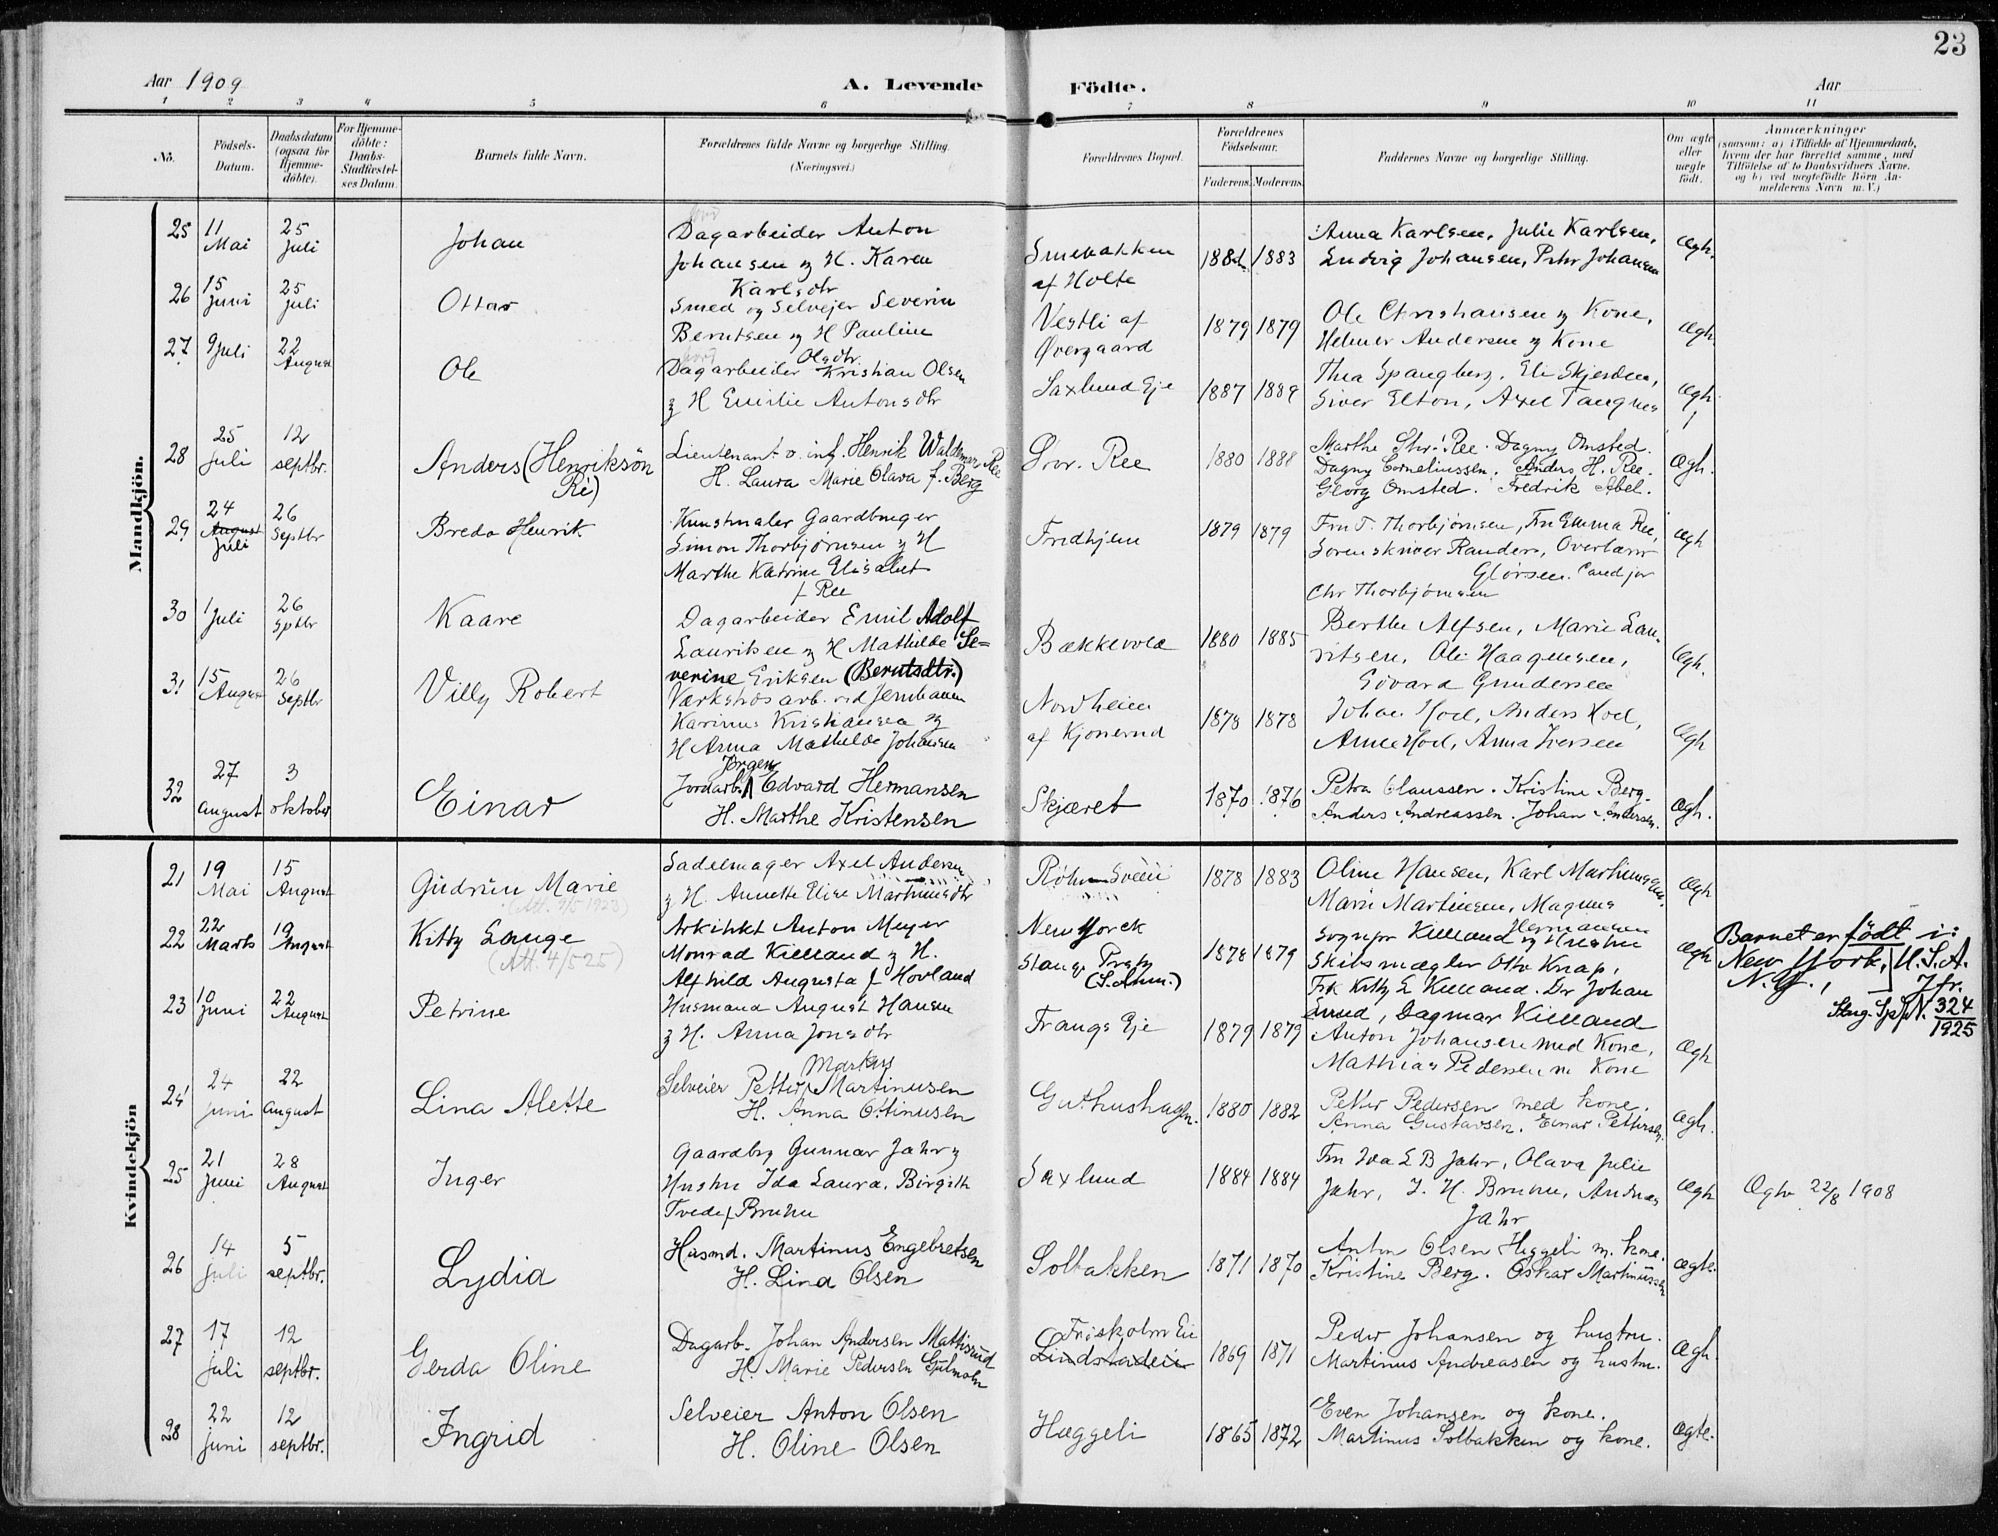 23
Aar 1909
A. Levende Födte.
Aar
1 2 3 4 5 6 7 8 9 10 11
No.
Födsels-Datum.
Daabsdatum (ogsaa for Hjemme-döbte).
For Hjemme-döbte: Daabs-Stadfæstel-ses Datum.
Barnets fulde Navn.
Forældrenes fulde Navne og borgerlige Stilling.
(Næringsvei.)
Forældrenes Bopæl.
Forældrenes Födselsaar.
Faderens. Moderens.
Faddernes Navne og borgerlige Stilling.
Om ægte eller uægte födt.
Anmærkninger
(saasom: a) i Tilfælde af Hjemmedaab,
hvem der har forrettet samme, med
Tilföielse af to Daabsvidners Navne.
og b) ved uægtefödte Börn An-
melderens Navn m. V.)
Mandkjön.
25 11 Mai 25 Juli Johan
Dagarbeider Anton
Johansen og H. Karen
Karlsdtr
Smebakken
af Holte
1881 1883
Anna Karlsen, Julie Karlsen,
Ludvig Johansen, Petr Johansen
Ægh.
26 15 Juni 25 Juli Ottar
Smed og Selvejer Severin
Berntsen og H Pauline
Olsdtr.
Vestli af
Øvergaard
1879 1879
Ole Christiansen og Kone,
Helmer Andersen og Kone
Ægh.
27 9 Juli 22 August Ole
Dagarbeider Kristian Olsen
og H Emilie Antonsdtr
Saxlund Eje
1887 1889
Thea Spangberg. Eli Skjerden,
Siver Elton, Axel Tangnes
Ægh
28 25 Juli 12 septbr. Anders (Henriksön
Ré)
Lieutenant v. inf. Henrik Waldemar Ree
H. Laura Marie Olava f. Berg
Stor. Ree
1880 1888
Marthe Stor-Ree. Dagny Omsted.
Dagny Corneliussen. Anders H. Ree.
Georg Omsted. Fredrik Abel.
Ægh.
29 24 August Juli 26 Septbr Bredo Henrik
Kunstmaler Gaardbruger
Simon Thorbjørnsen og H
Marthe Katrine Elisabet
f Ree
Fredhjem
1879 1879
Fru T. Thorbjørnsen, Fru Emma Ree,
Sorenskriver Randers, Overlærer
Glørsen. Cand jur
Chr Thorbjørnsen
Ægh
30 1 Juli 26 Sptbr Kaare
Dagarbeider Emil Adolf
Lauritsen og H Mathilde Se-
verine Eriksen (Berntsdtr.)
Bækkevold
1880 1885
Berthe Alfsen, Marie Lau-
ritsen, Ole Haagensen,
Edvard Gundersen
Ægh.
31 15 August 26 Septbr Villy Robert
Værkstedsarb. ved Jernbanen
Karinus Kristiansen og
H Anna Mathilde Johansen
Nordheim
af Kjonerud
1878 1878
Johan Hoel, Anders Hoel,
Anne Hoel, Anna Iversen
Ægh
32 27 august 3 oktober Einar
Jørgen
Jordarb. Edvard Hermansen
H. Marthe Kristensen
Skjæret
1870 1876
Petra Claussen. Kristine Berg.
Anders Andreassen. Johan Andersen.
Ægh.
Kvindekjön
21 19 Mai 15 August Gudrün Marie
(Att. 9/5 1923)
Sadelmager Axel Andersen
og H. Annette Elise Martinusdtr
Röhne Sveen
1878 1883
Oline Hansen, Karl Martinussen.
Marie Martinsen, Magnus
Hermansen
Ægh
22 22 Marts 19 August Kitty Lange
(Att. 4/525)
Arkitekt Anton Meyer
Monrad Kielland og H.
Alfhild Augusta f Hovland
New Yorck
Stange Prgj
1878 1879
Sognepr Kielland og Hustru
Skibsmægler Otto Knap,
Frk Kitty L Kielland. Dr Johan
Lund, Dagmar Kielland
Ægh
Barnet er födt i:
New York, U.S.A.
N.Y., Jfr.
Stng. Sp. pr. N. 324/1925
23 10 Juni 22 August Petrine
Husmand August Hansen
og H. Anna Jonsdtr
Frangs Eje
1879 1879
Anton Johansen med Kone,
Mathias Pedersen m Kone
Ægh
24 24 juni 22 august Lina Alette
Markus
Selveier Petter Martinusen
H. Anna Ottinusen
Guthushagen.
1880 1882
Petter Pedersen med kone.
Anna Gustavsen. Einar Pettersen.
Ægh.
25 21 Juni 28 August Inger
Gaardbrg Gunnar Jahr og
Hustru Ida Laura, Birgitte
Tvede f Bruhn
Saxlund
1884 1884
Fru Ida L B Jahr, Olava Julie
Jahr, J. H. Bruhn, Andreas
Jahr
Ægh
Ægtv 22/8 1908
26 14 Juli 5 septbr. Lydia
Husmd. Martinus Engebretsen
H. Lina Olsen
Solbakken
1871 1870
Anton Olsen Hæggeli m. kone.
Kristine Berg. Oskar Martinüssen
Ægte.
27 17 Juli 12 septbr. Gerda Oline
Dagarb. Johan Andersen Mathisrud
H. Marie Pedersen
Friskolm Eie
Lindstadeie
1869 1871
Peder Johansen og hustru.
Martinus Andreasen og hustru.
Ægh.
28 22 juni 12 septbr. Ingrid
Selveier Anton Olsen
H. Oline Olsen
Hæggeli
1865 1872
Even Johansen og kone.
Martinus Solbakken og kone.
Ægte.